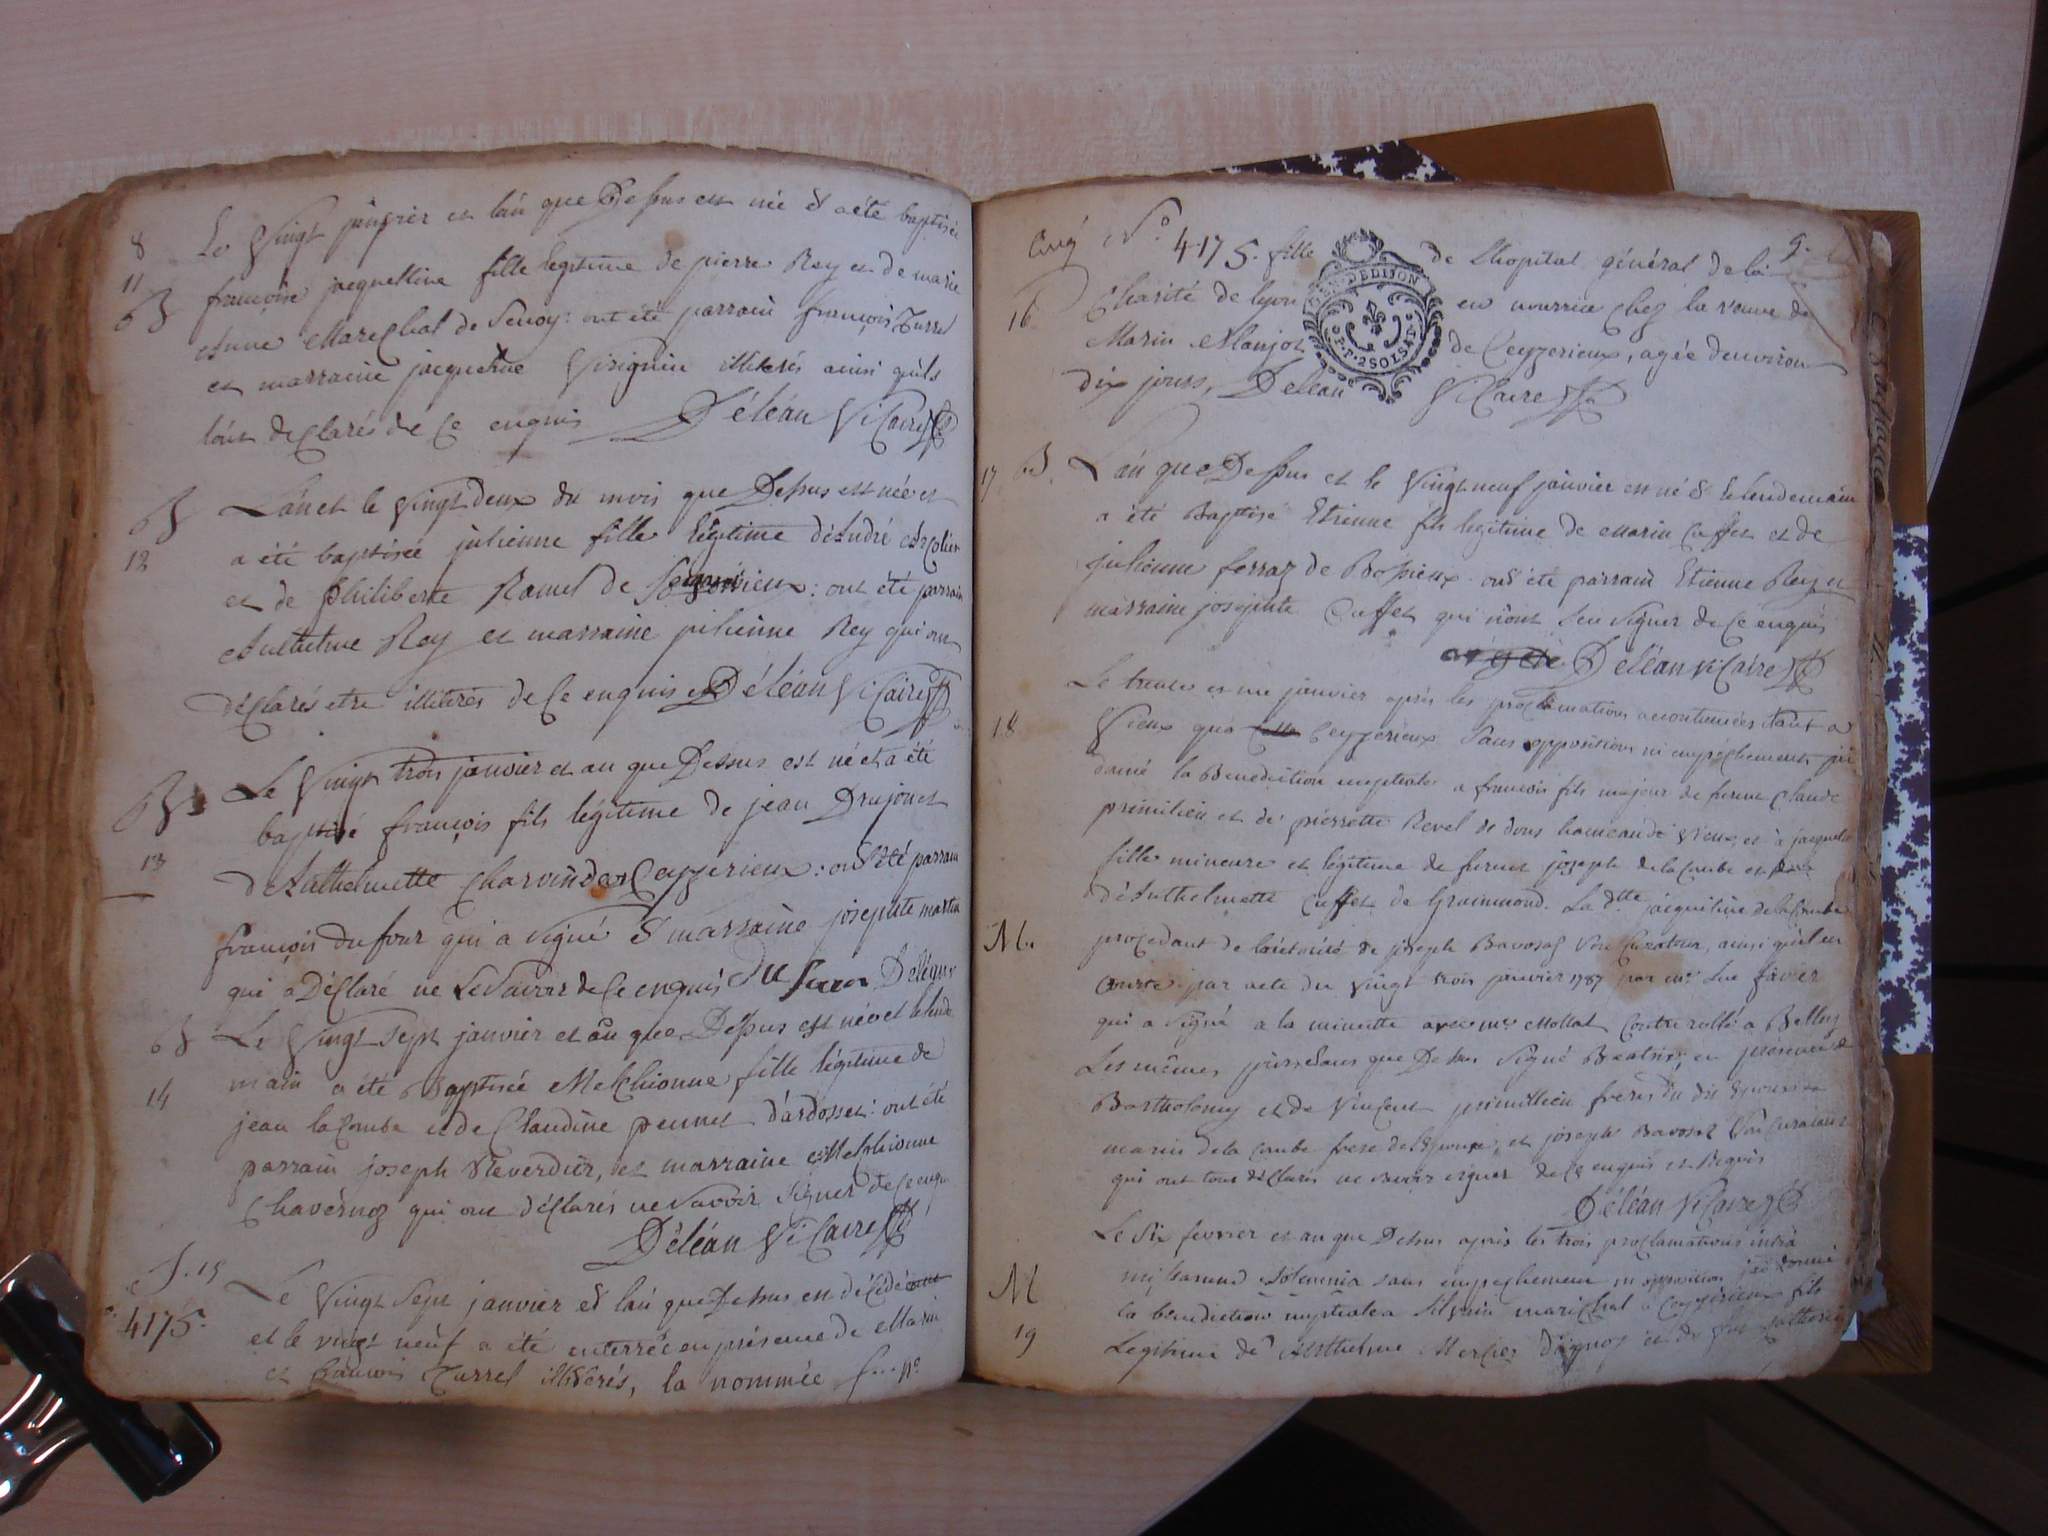 8
Le vingt janvier et l'an que Dessus est née & a été baptisée
11
françoise jacqueline fille legitime de pierre Rey et de marie
B
Anne Marechal de Senoy: ont été parrain françois Turrel
et marraine jacqueline Virignin illiterés ainsi qu'ils
l'ont declarés de ce enquis Déléan Vicaire
B
L'an et le vingt deux du mois que Dessus est née et
12
a été baptisée julienne fille légitime d'André
et de philiberte Ramel de : ont été parrain
Anthelme Rey et marraine julienne Rey qui ont
déclarés etre illiterés de Ce enquis Déléan Vicaire
B
Le vingt trois janvier et an que Dessus est né et a été
baptisé françois fils légitime de jean Drujon et
13
d'Anthelmette Charvin de Ceyzerieux: ont été parrain
françois dufour qui a signé & marraine josephte martin
qui a Déclaré ne Le Savoir de Ce enquis Dufour Deléan
B
Le vingt sept janvier et an que Dessus est née et le lende
14
main a été Baptisée Melchionne fille légitime de
jean la Combe et de Claudine pennet d'ardosset: ont été
parrain joseph Reverdier, et marraine Melchionne
Chavernoz qui ont déclarés ne Savoir Signer de Ce enqu
Déléan Vicaire
S. 15
Le vingt Sept janvier & l'an que Dessus est décédée
4175.
et le vingt neuf a été enterrée en présence de Marin
et françois Turrel illiterés, la nommée f... n°
Cinq N° 4175. fille de l'hopital général de la 9.
16
Charité de lyon en nourrice chez la veuve de
Marin Manjot de Ceyzerieux, agée d'environ
dix jours, Deléan Vicaire
GEN DE DIJON
P.P. 2 SOLS 4 D
17 B.
L'an que Dessus et le vingt neuf janvier est né & le lendemain
a été Baptisé Etienne fils legitime de Marin Cuffet et de
julienne ferraz de Bossieux. ont été parrain Etienne Rey et
marraine josephte Cuffet qui n'ont Seu Signer de Ce enquis
Déléan Vicaire
Le trente et un janvier après les proclamations accoutumées tant a
18
Vieux qu'a Ceyzerieux Sans opposition ni empêchement j'ai
donné la Benediction nuptiale a françois fils majeur de furent Claude
primilieu et de pierrette Revel de hameau de Vieux, et à jacqueline
fille mineure et légitime de furent joseph de la Combe et
d'Anthelmette Cuffet de Grammond. La dtte jacqueline de la Combe
M.
procedant de l'autorité de joseph Bavosat Son Curateur, ainsi qu'il en
Conste par acte du vingt trois janvier 1787 par me. Luc favier
qui a signé a la minutte avec mr Mollat Controllé a Belley
Les mêmes jour et an que Dessus Signé en présence de
Bartholomy et de Vincent primillieu freres du dit Epoux de
marin de la Combe frere de l'Epouse, et joseph Bavosat Son Curateur
qui ont tous déclarés ne savoir signer de Ce enquis et Requis
Déléan Vicaire
Le Six fevrier et an que Dessus après les trois proclamations intrà
M
missarum Solemnia sans empechement ni opposition j'ai donné
la bénédiction nuptiale a marechal a Ceyzerieux fils
19
Legitime de Anthelme Mercier et de